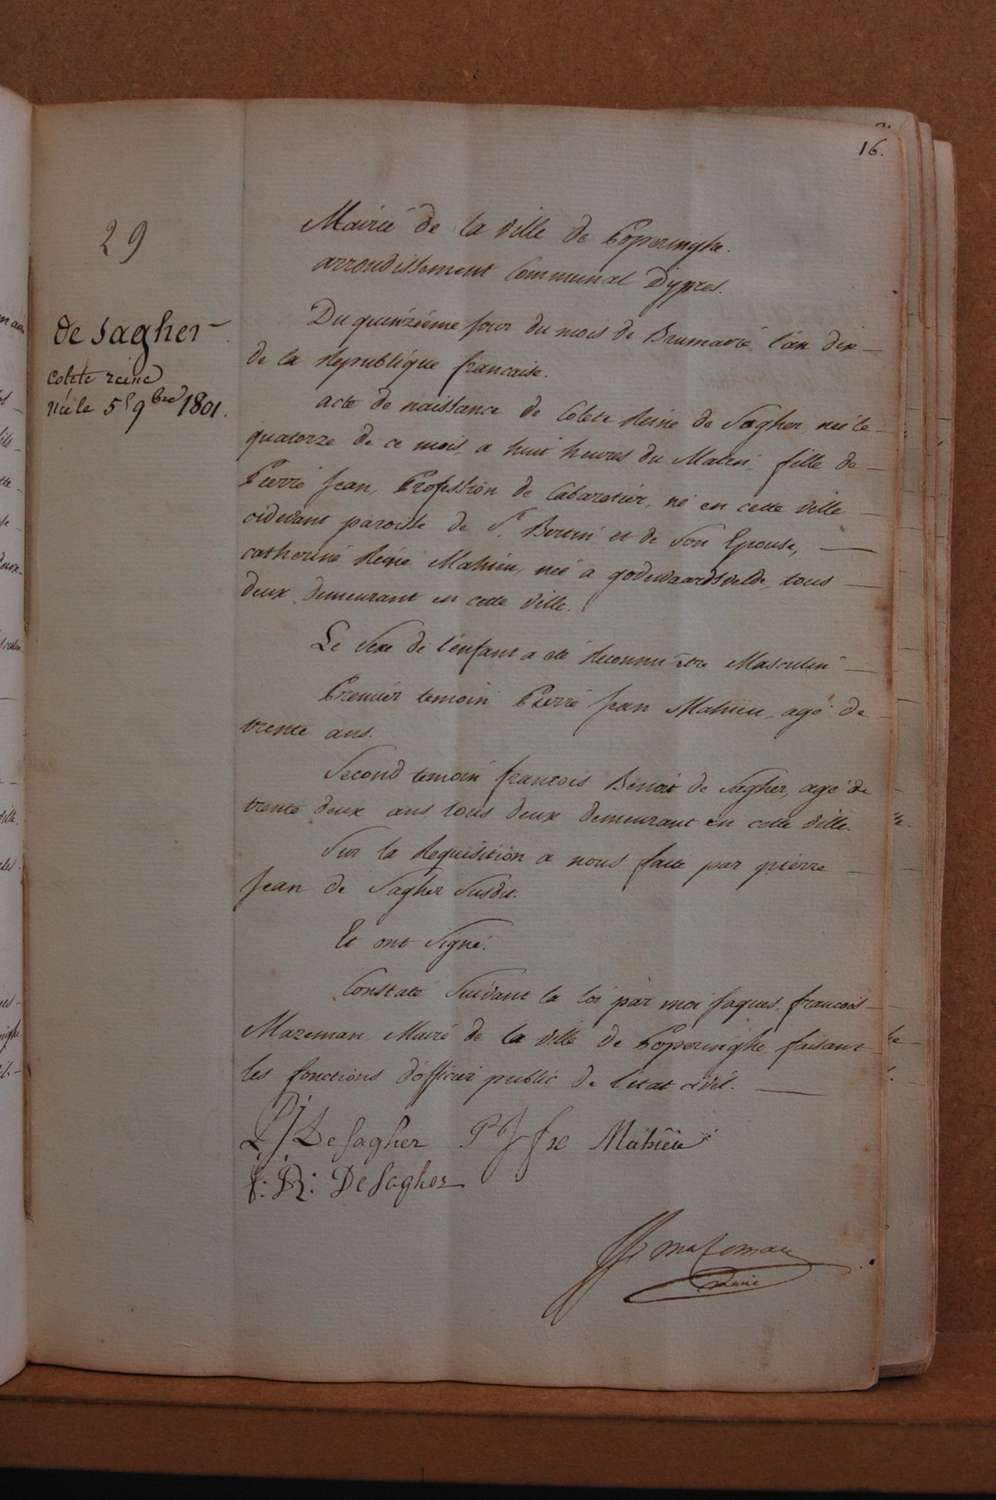 16.
29
Mairié de la ville de Poperinghe.
arrondissement Communal Dypres.
de Sagher
Colete reine
née le 5 9bre 1801.
Du quinzieme jour du mois de Brumaire l'an dix
de la République francaise.
acte de naissance de Colete Reine de Sagher, née le
quatorze de ce mois, a huit heures du Matin, fille de
Pierre Jean, Profession de Cabaretier, né en cette ville
cidevant paroisse de St. Bertin et de Son Epouse,
catherine Reine Mahieu, née a godewaardsvelde, tous
deux demeurant en cette ville.
Le Sexe de l'enfant a été Reconnu être Masculin
Premier temoin Pierre Jean Mahieu, agé de
trente ans.
Second temoin francois Benoit de Sagher, agé de
trente deux ans tous deux demeurant en cette ville.
Sur la Requisition a nous faite par pierre
Jean de Sagher Susdit.
Et ont Signé.
Constaté Suivant la loi par moi Jaques francois
Mazeman Maire de la ville de Poperinghe faisant
les fonctions d'officier public de l'etat civil.
PJ DeSagher P J fx Mahieu
f: B: DeSagher
Mazeman
maire